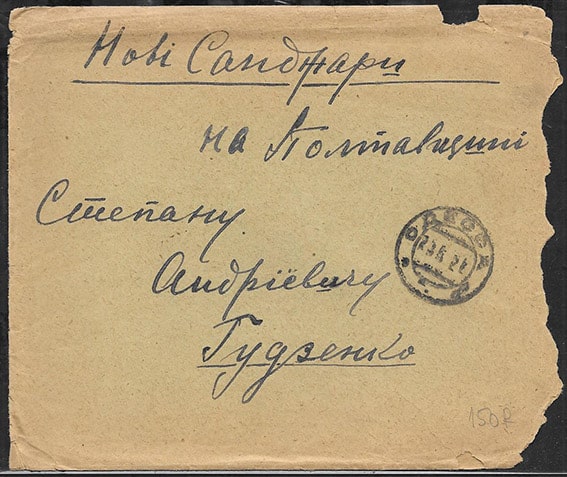 Нові Санджари
на Полтавщині
Степану
Андрієвичу
Гудзенко
ОДЕССА
150₽